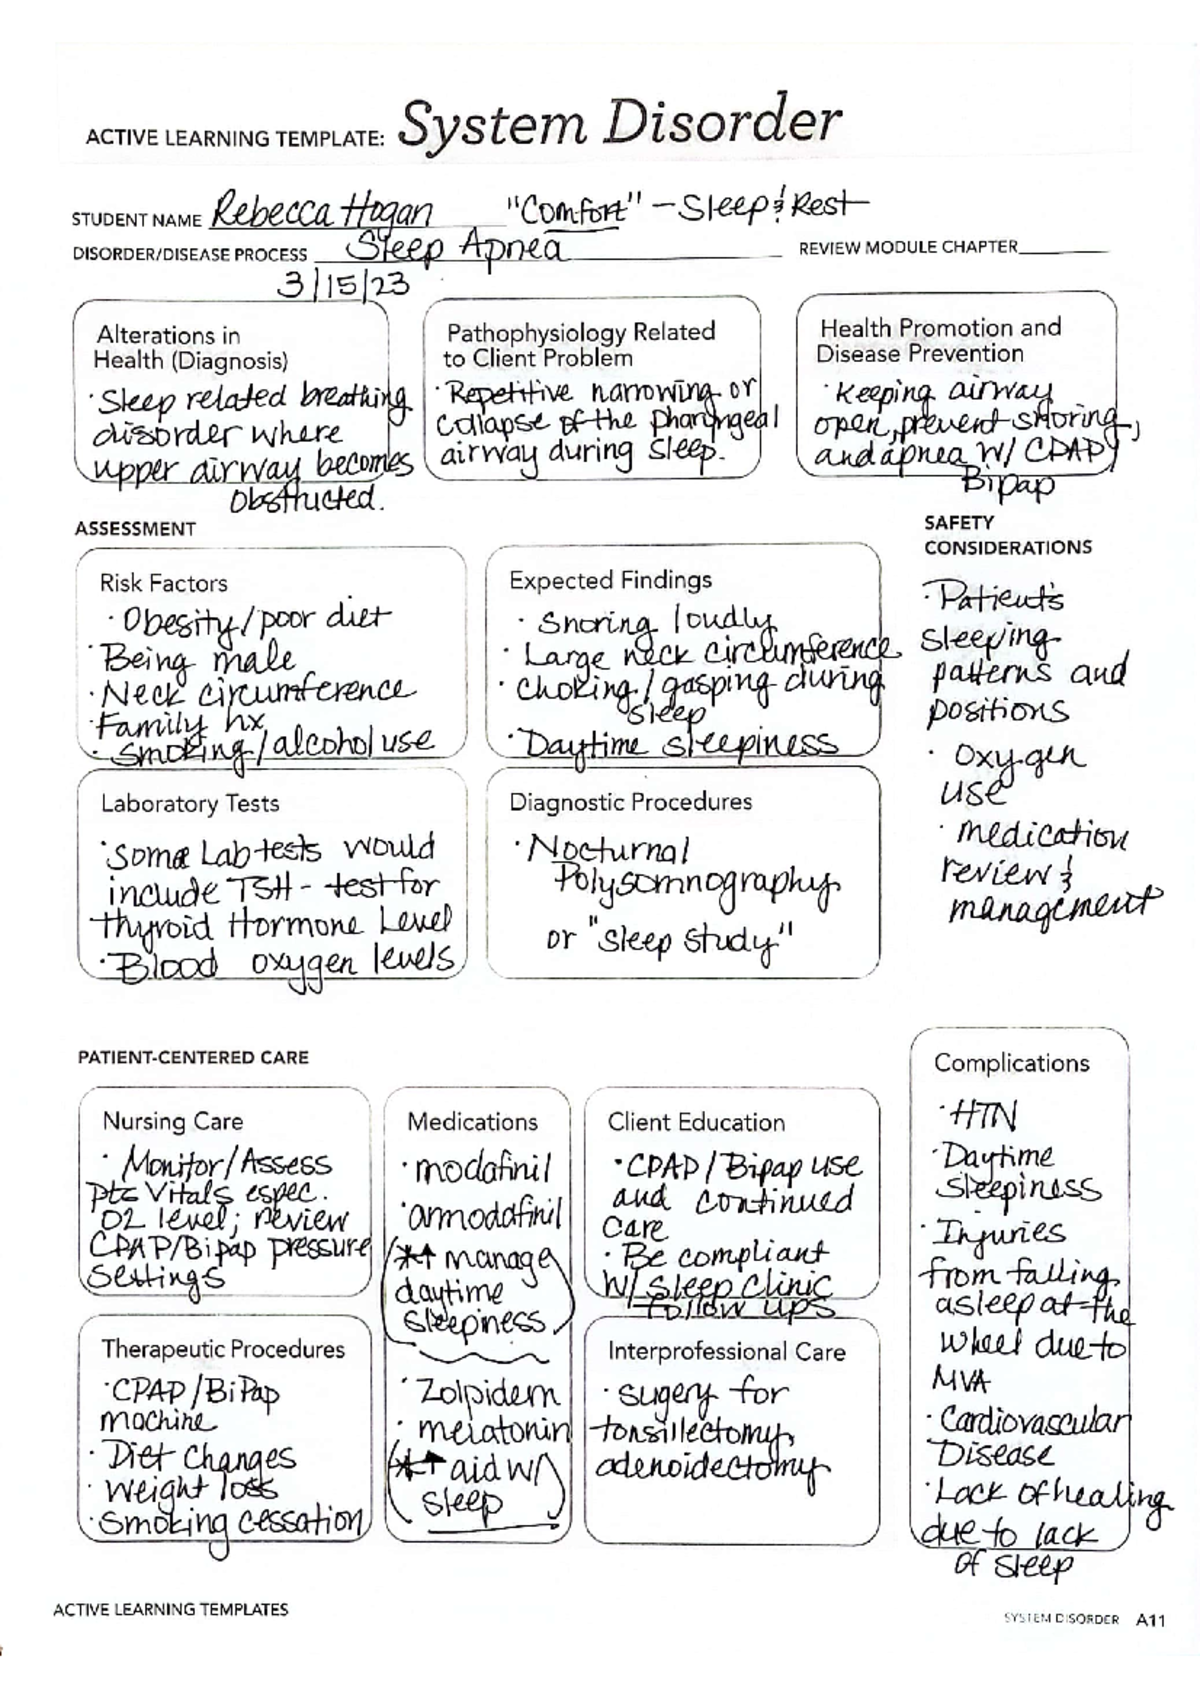 ACTIVE LEARNING TEMPLATE: System Disorder
STUDENT NAME Rebecca Hogan "Comfort" - Sleep & Rest
DISORDER/DISEASE PROCESS Sleep Apnea REVIEW MODULE CHAPTER
3/15/23
Alterations in
Health (Diagnosis)
· Sleep related breathing
disorder where
upper airway becomes
obstructed.
Pathophysiology Related
to Client Problem
· Repetitive narrowing or
collapse of the pharyngeal
airway during sleep.
Health Promotion and
Disease Prevention
· Keeping airway
open, prevent snoring,
and apnea w/ CPAP/
Bipap
ASSESSMENT
SAFETY
CONSIDERATIONS
Risk Factors
· Obesity/poor diet
· Being male
· Neck circumference
· Family hx
· Smoking/alcohol use
Expected Findings
· Snoring loudly
· Large neck circumference
· Choking/gasping during
sleep
· Daytime sleepiness
· Patient's
sleeping
patterns and
positions
· Oxygen
use
· medication
review &
management
Laboratory Tests
· Some Lab tests would
include TSH - test for
thyroid Hormone Level
· Blood oxygen levels
Diagnostic Procedures
· Nocturnal
Polysomnography
or "sleep study"
PATIENT-CENTERED CARE
Nursing Care
· Monitor/Assess
pts Vitals espec.
O2 level; review
CPAP/Bipap pressure
settings
Medications
· modafinil
· armodafinil
(** manage
daytime
sleepiness)
· Zolpidem
· melatonin
(** aid w/
sleep)
Client Education
· CPAP/Bipap use
and continued
care
· Be compliant
w/ sleep clinic
follow ups
Complications
· HTN
· Daytime
sleepiness
· Injuries
from falling
asleep at the
wheel due to
MVA
· Cardiovascular
Disease
· Lack of healing
due to lack
of sleep
Therapeutic Procedures
· CPAP/BiPap
machine
· Diet Changes
· Weight loss
· Smoking cessation
Interprofessional Care
· sugery for
tonsillectomy,
adenoidectomy
ACTIVE LEARNING TEMPLATES
SYSTEM DISORDER A11